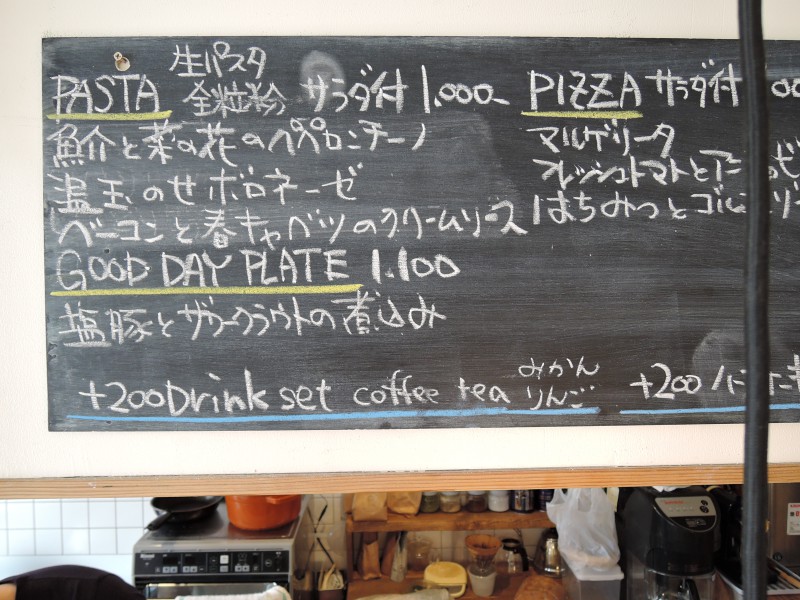 生パスタ
PASTA 全粒粉 サラダ付 1.000-
魚介と菜の花のペペロンチーノ
温玉のせボロネーゼ
ベーコンと春キャベツのクリームソース
GOOD DAY PLATE 1.100
塩豚とザワークラウトの煮込み
PIZZA サラダ付
マルゲリータ
フレッシュトマトと
はちみつとゴル
+200 Drink set coffee tea みかん りんご
+200